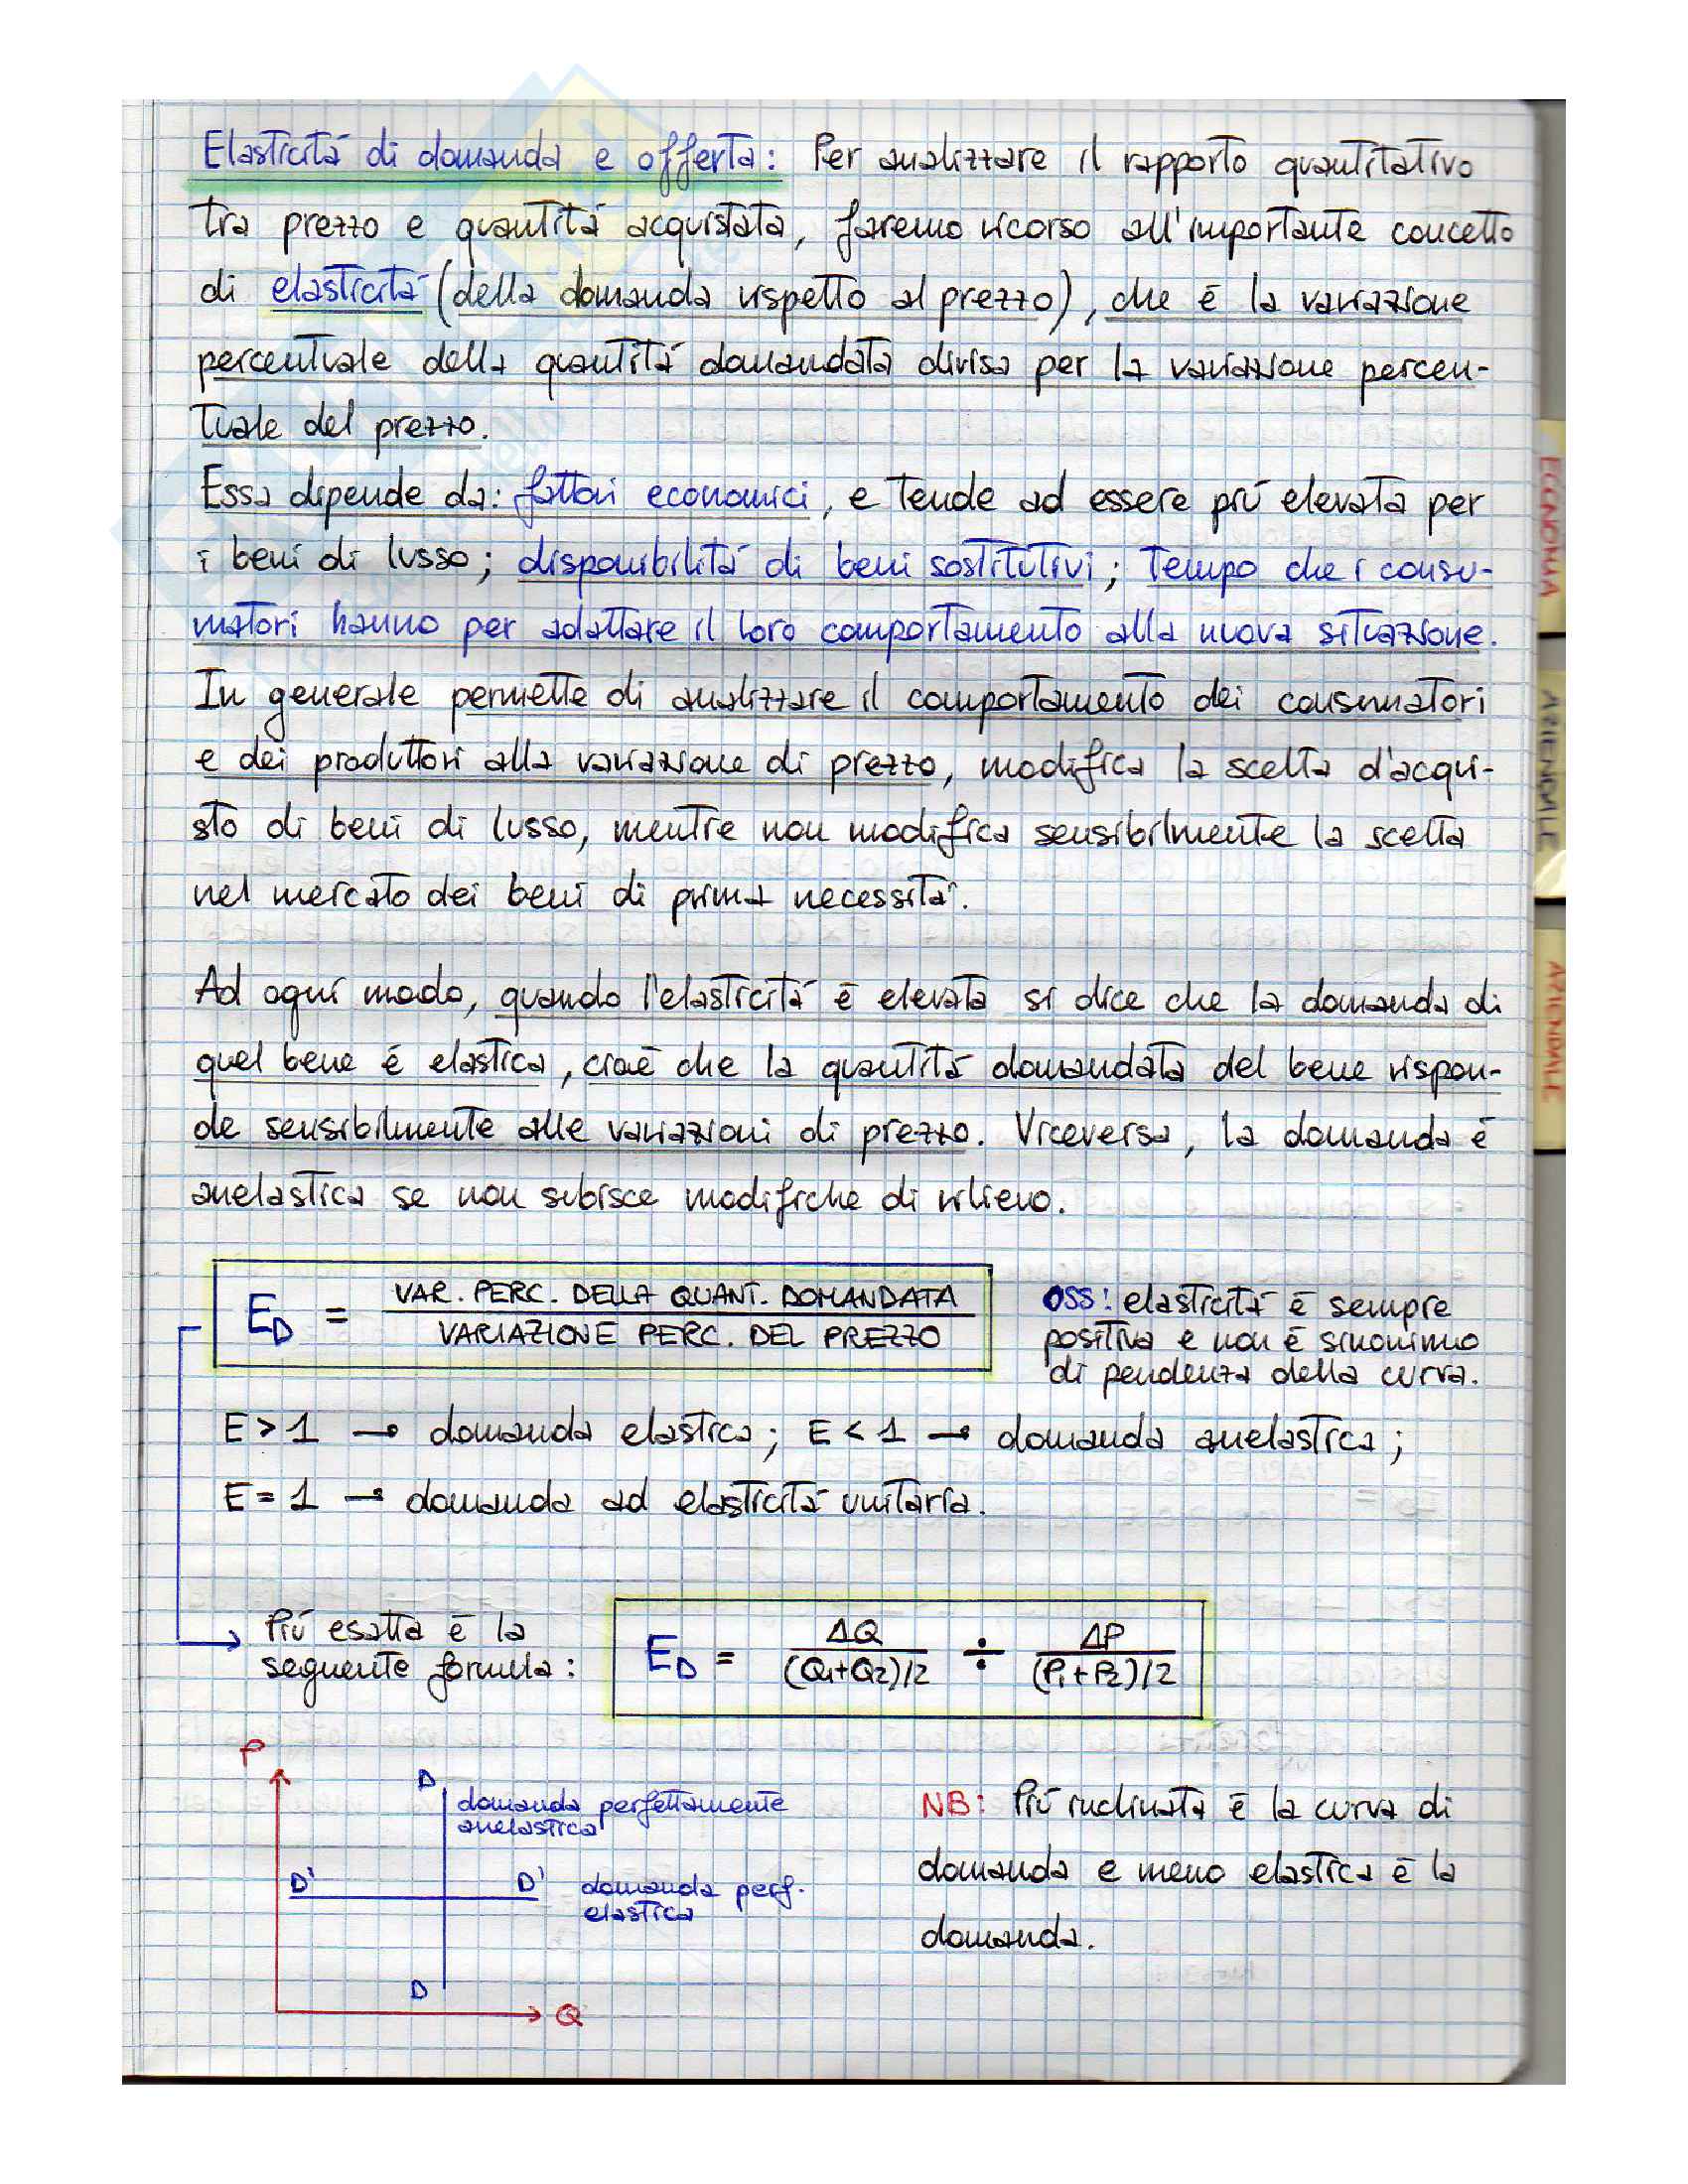 Elasticità di domanda e offerta: Per analizzare il rapporto quantitativo
tra prezzo e quantità acquistata, faremo ricorso all'importante concetto
di elasticità (della domanda rispetto al prezzo), che è la variazione
percentuale della quantità domandata divisa per la variazione percen-
tuale del prezzo.
Essa dipende da: fattori economici, e tende ad essere più elevata per
i beni di lusso; disponibilità di beni sostitutivi; tempo che i consu-
matori hanno per adattare il loro comportamento alla nuova situazione.
In generale permette di analizzare il comportamento dei consumatori
e dei produttori alla variazione di prezzo, modifica la scelta d'acqui-
sto di beni di lusso, mentre non modifica sensibilmente la scelta
nel mercato dei beni di prima necessità.
Ad ogni modo, quando l'elasticità è elevata si dice che la domanda di
quel bene è elastica, cioè che la quantità domandata del bene rispon-
de sensibilmente alle variazioni di prezzo. Viceversa, la domanda è
anelastica se non subisce modifiche di rilievo.
E_D = VAR. PERC. DELLA QUANT. DOMANDATA / VARIAZIONE PERC. DEL PREZZO
OSS: elasticità è sempre
positiva e non è sinonimo
di pendenza della curva.
E > 1 → domanda elastica; E < 1 → domanda anelastica;
E = 1 → domanda ad elasticità unitaria.
Più esatta è la
seguente formula:
E_D = ΔQ / (Q1+Q2)/2 ÷ ΔP / (P1+P2)/2
P
D
domanda perfettamente
anelastica
D' D' domanda perf.
elastica
D
Q
NB: Più inclinata è la curva di
domanda e meno elastica è la
domanda.
ECONOMIA
AZIENDALE
AZIENDALE